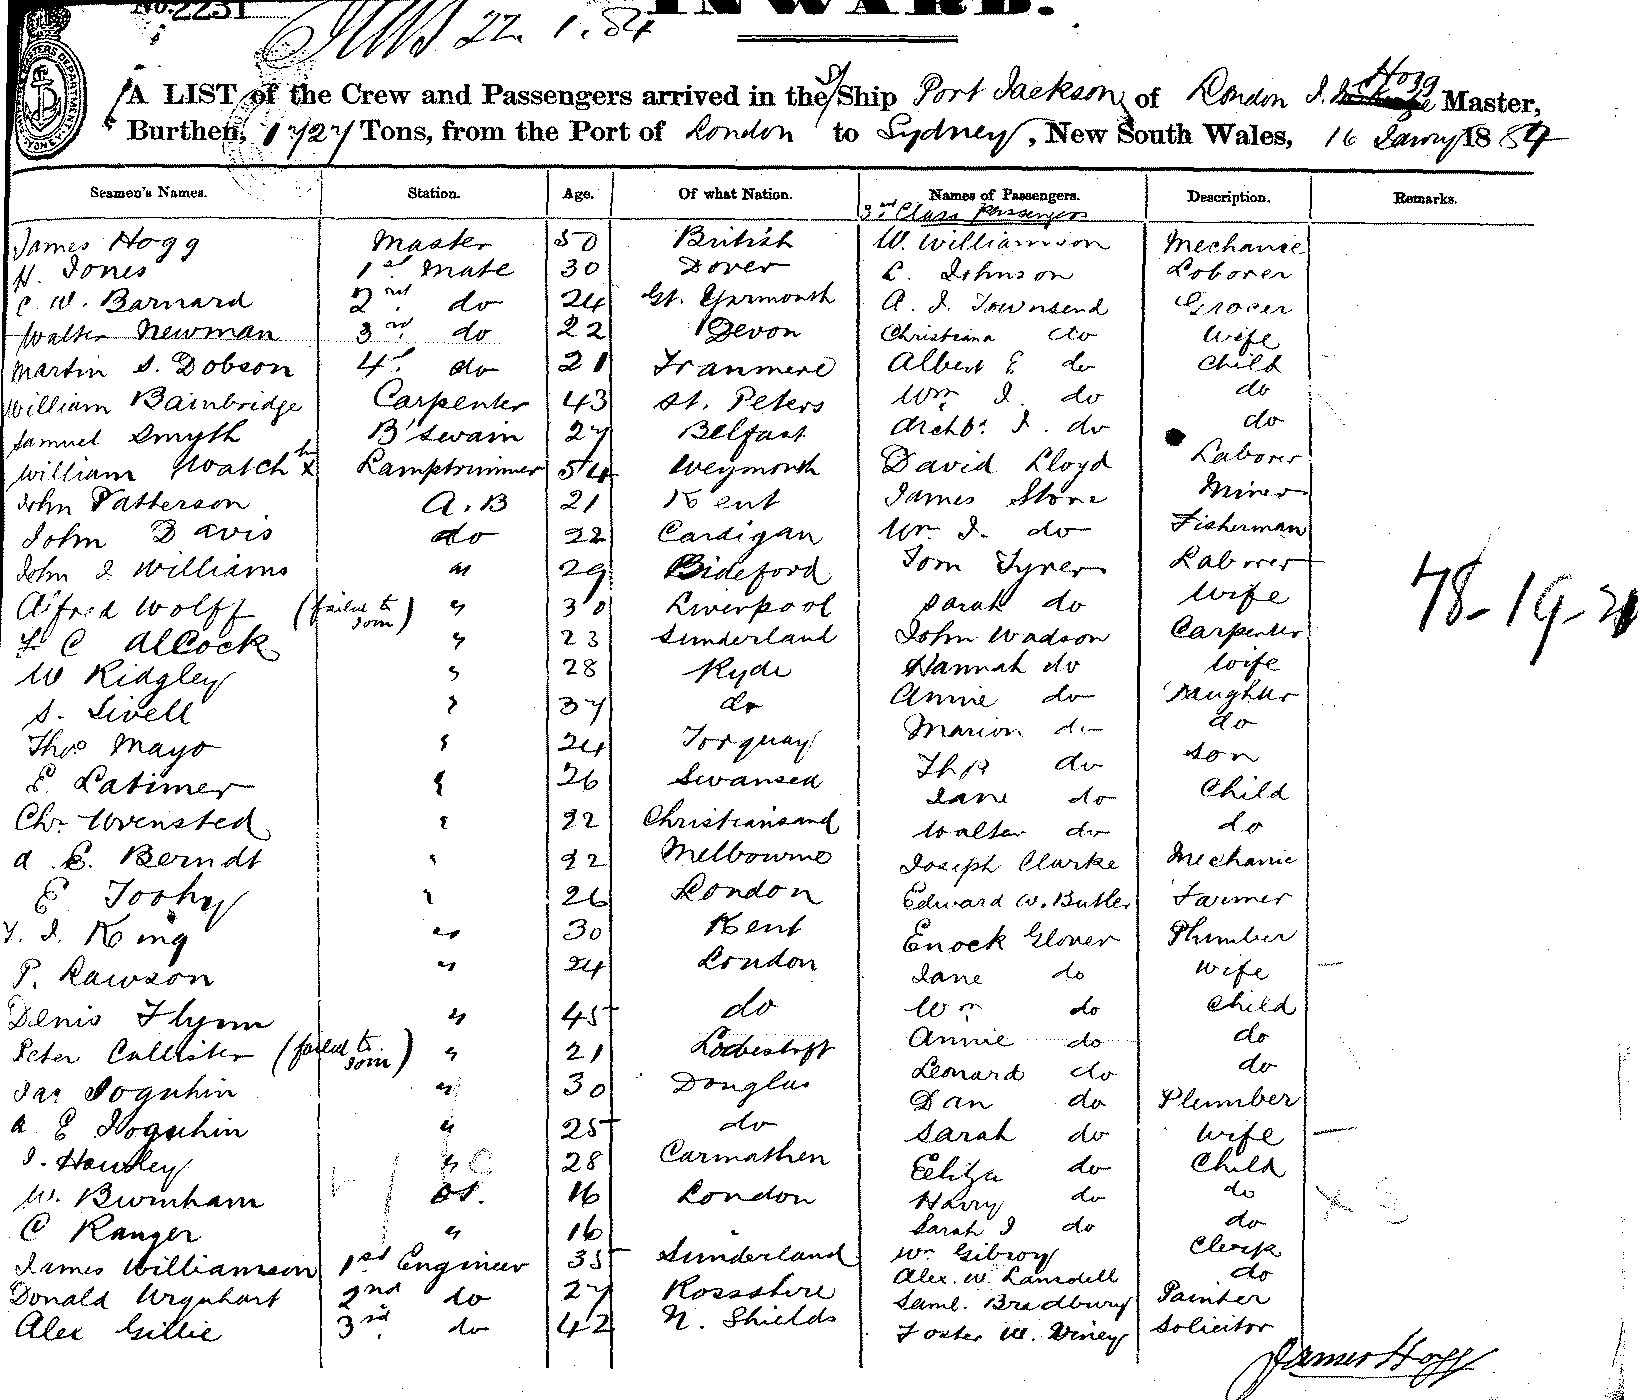 No. 2231
INWARD.
22. 1. 84
A LIST of the Crew and Passengers arrived in the S/Ship Port Jackson of London J. Hogg Master,
Burthen, 1727 Tons, from the Port of London to Sydney, New South Wales, 16 Janry 1884
Seamen's Names. Station. Age. Of what Nation. Names of Passengers. Description. Remarks.
3rd Class Passengers
James Hogg Master 50 British W. Williamson Mechanic
H. Jones 1st Mate 30 Dover L. Johnson Laborer
C. W. Barnard 2nd do 24 Gt. Yarmouth A. J. Townsend Grocer
Walter Newman 3rd do 22 Devon Christiana do Wife
Martin S. Dobson 4th do 21 Tranmere Albert E do Child
William Bainbridge Carpenter 43 St. Peters Wm J. do do
Samuel Smyth B'swain 27 Belfast Archb. J. do do
William Lamptrimmer 54 Weymouth David Lloyd Laborer
John Patterson A.B 21 Kent James Stone Miner
John Davis do 22 Cardigan Wm J. do Fisherman
John J Williams " 29 Bideford Tom Tyner Laborer
Alfred Wolff (failed to join) " 30 Liverpool Sarah do Wife
C Alcock " 23 Sunderland John Wadson Carpenter
W Ridgley " 28 Ryde Hannah do Wife
S. Sivell " 37 do Annie do Daughter
Thos Mayo " 24 Torquay Marion do do
E. Latimer " 26 Swansea Thos do Son
Chr. " 22 Christiansand Jane do Child
A. E. Berndt " 22 Melbourne Walter do do
E Toohy " 26 London Joseph Clarke Mechanic
T. J. King " 30 Kent Edward W. Butler Farmer
P. Lawson " 24 London Enock Glover Plumber
Denis Flynn " 45 do Jane do Wife
Peter Callister (failed to join) " 21 Lowestoft Wm do Child
Jas Joguhin " 30 Douglas Annie do do
A E Joguhin " 25 do Leonard do do
J. Howley " 28 Carmathen Dan do Plumber
W. Burnham OS. 16 London Sarah do Wife
C Ranger " 16 " Eliza do Child
James Williamson 1st Engineer 35 Sunderland Harry do do
Donald Urquhart 2nd do 27 Rossshire Sarah J do do
Alex Gillie 3rd do 42 N. Shields Wm Gibroy Clerk
Alex. W. Lansdell do
Saml. Bradbury Painter
Foster W. Viney Solicitor
78-19-2
James Hogg